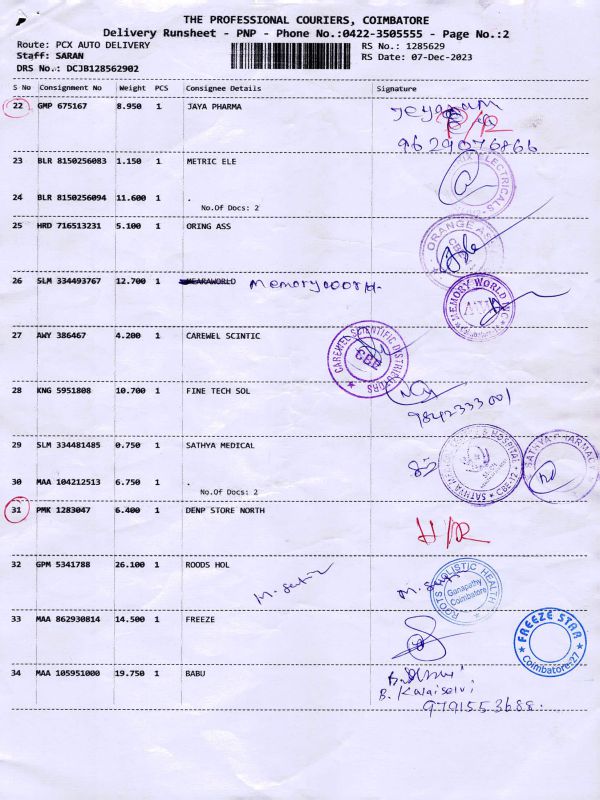 THE PROFESSIONAL COURIERS, COIMBATORE
Delivery Runsheet - PNP - Phone No.:0422-3505555 - Page No.:2
Route: PCX AUTO DELIVERY
RS No.: 1285629
Staff: SARAN
RS Date: 07-Dec-2023
DRS No.: DCJB128562902
S No Consignment No Weight PCS Consignee Details Signature
22 GMP 675167 8.950 1 JAYA PHARMA
H/R
9629076866
23 BLR 8150256083 1.150 1 METRIC ELE
24 BLR 8150256094 11.600 1 .
No.Of Docs: 2
25 HRD 716513231 5.100 1 ORING ASS
ORANGE
26 SLM 334493767 12.700 1 MEARAWORLD memoryworld
MEMORY WORLD
27 AWY 386467 4.200 1 CAREWEL SCINTIC
CAREWEL SCIENTIFIC DISTRIBUTORS
CBE
28 KNG 5951808 10.700 1 FINE TECH SOL
9842333001
29 SLM 334481485 0.750 1 SATHYA MEDICAL
SATHYA PHARMACY
30 MAA 104212513 6.750 1 .
No.Of Docs: 2
31 PMK 1283047 6.400 1 DENP STORE NORTH
H/R
32 GPM 5341788 26.100 1 ROODS HOL
ROOTS HOLISTIC HEALTH
Ganapathy
Coimbatore
33 MAA 862930814 14.500 1 FREEZE
FREEZE STAR
Coimbatore-27
34 MAA 105951000 19.750 1 BABU
B. Kalaiselvi
9791553688